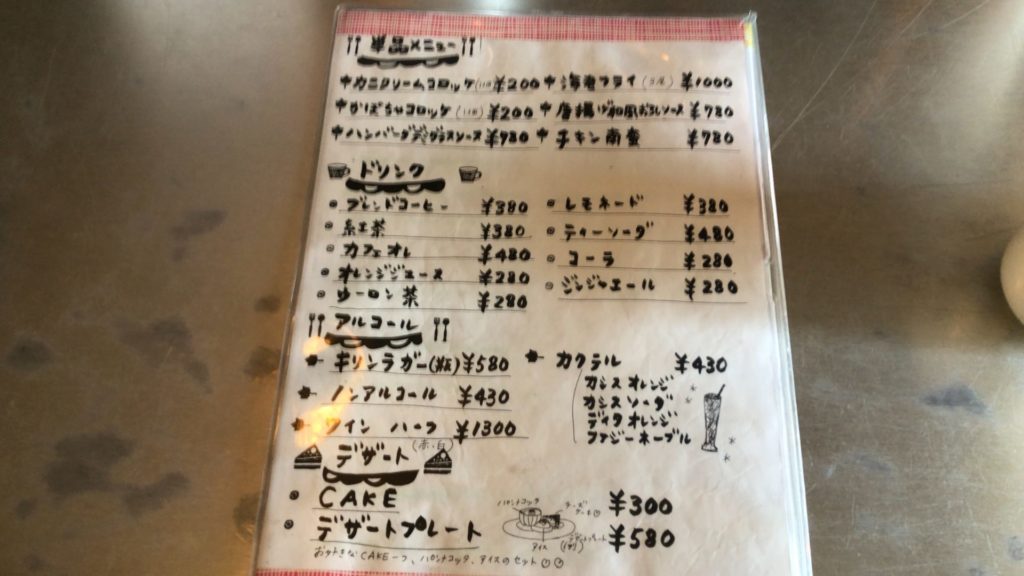 単品メニュー
カニクリームコロッケ(1ヶ) ¥200
海老フライ ¥1000
かぼちゃコロッケ(1ヶ) ¥200
唐揚げ和風おろしソース ¥780
ハンバーグデミグラスソース ¥980
チキン南蛮 ¥780
ドリンク
ブレンドコーヒー ¥380
レモネード ¥380
紅茶 ¥380
ティーソーダ ¥480
カフェオレ ¥480
コーラ ¥280
オレンジジュース ¥280
ジンジャエール ¥280
ウーロン茶 ¥280
アルコール
キリンラガー(瓶) ¥580
カクテル ¥430
カシスオレンジ
カシスソーダ
ディタオレンジ
ファジーネーブル
ノンアルコール ¥430
ワイン ハーフ ¥1300
(赤・白)
デザート
CAKE ¥300
デザートプレート ¥580
パンナコッタ
チーズケーキ
アイス
(例)
お好きなCAKE一つ、パンナコッタ、アイスのセット